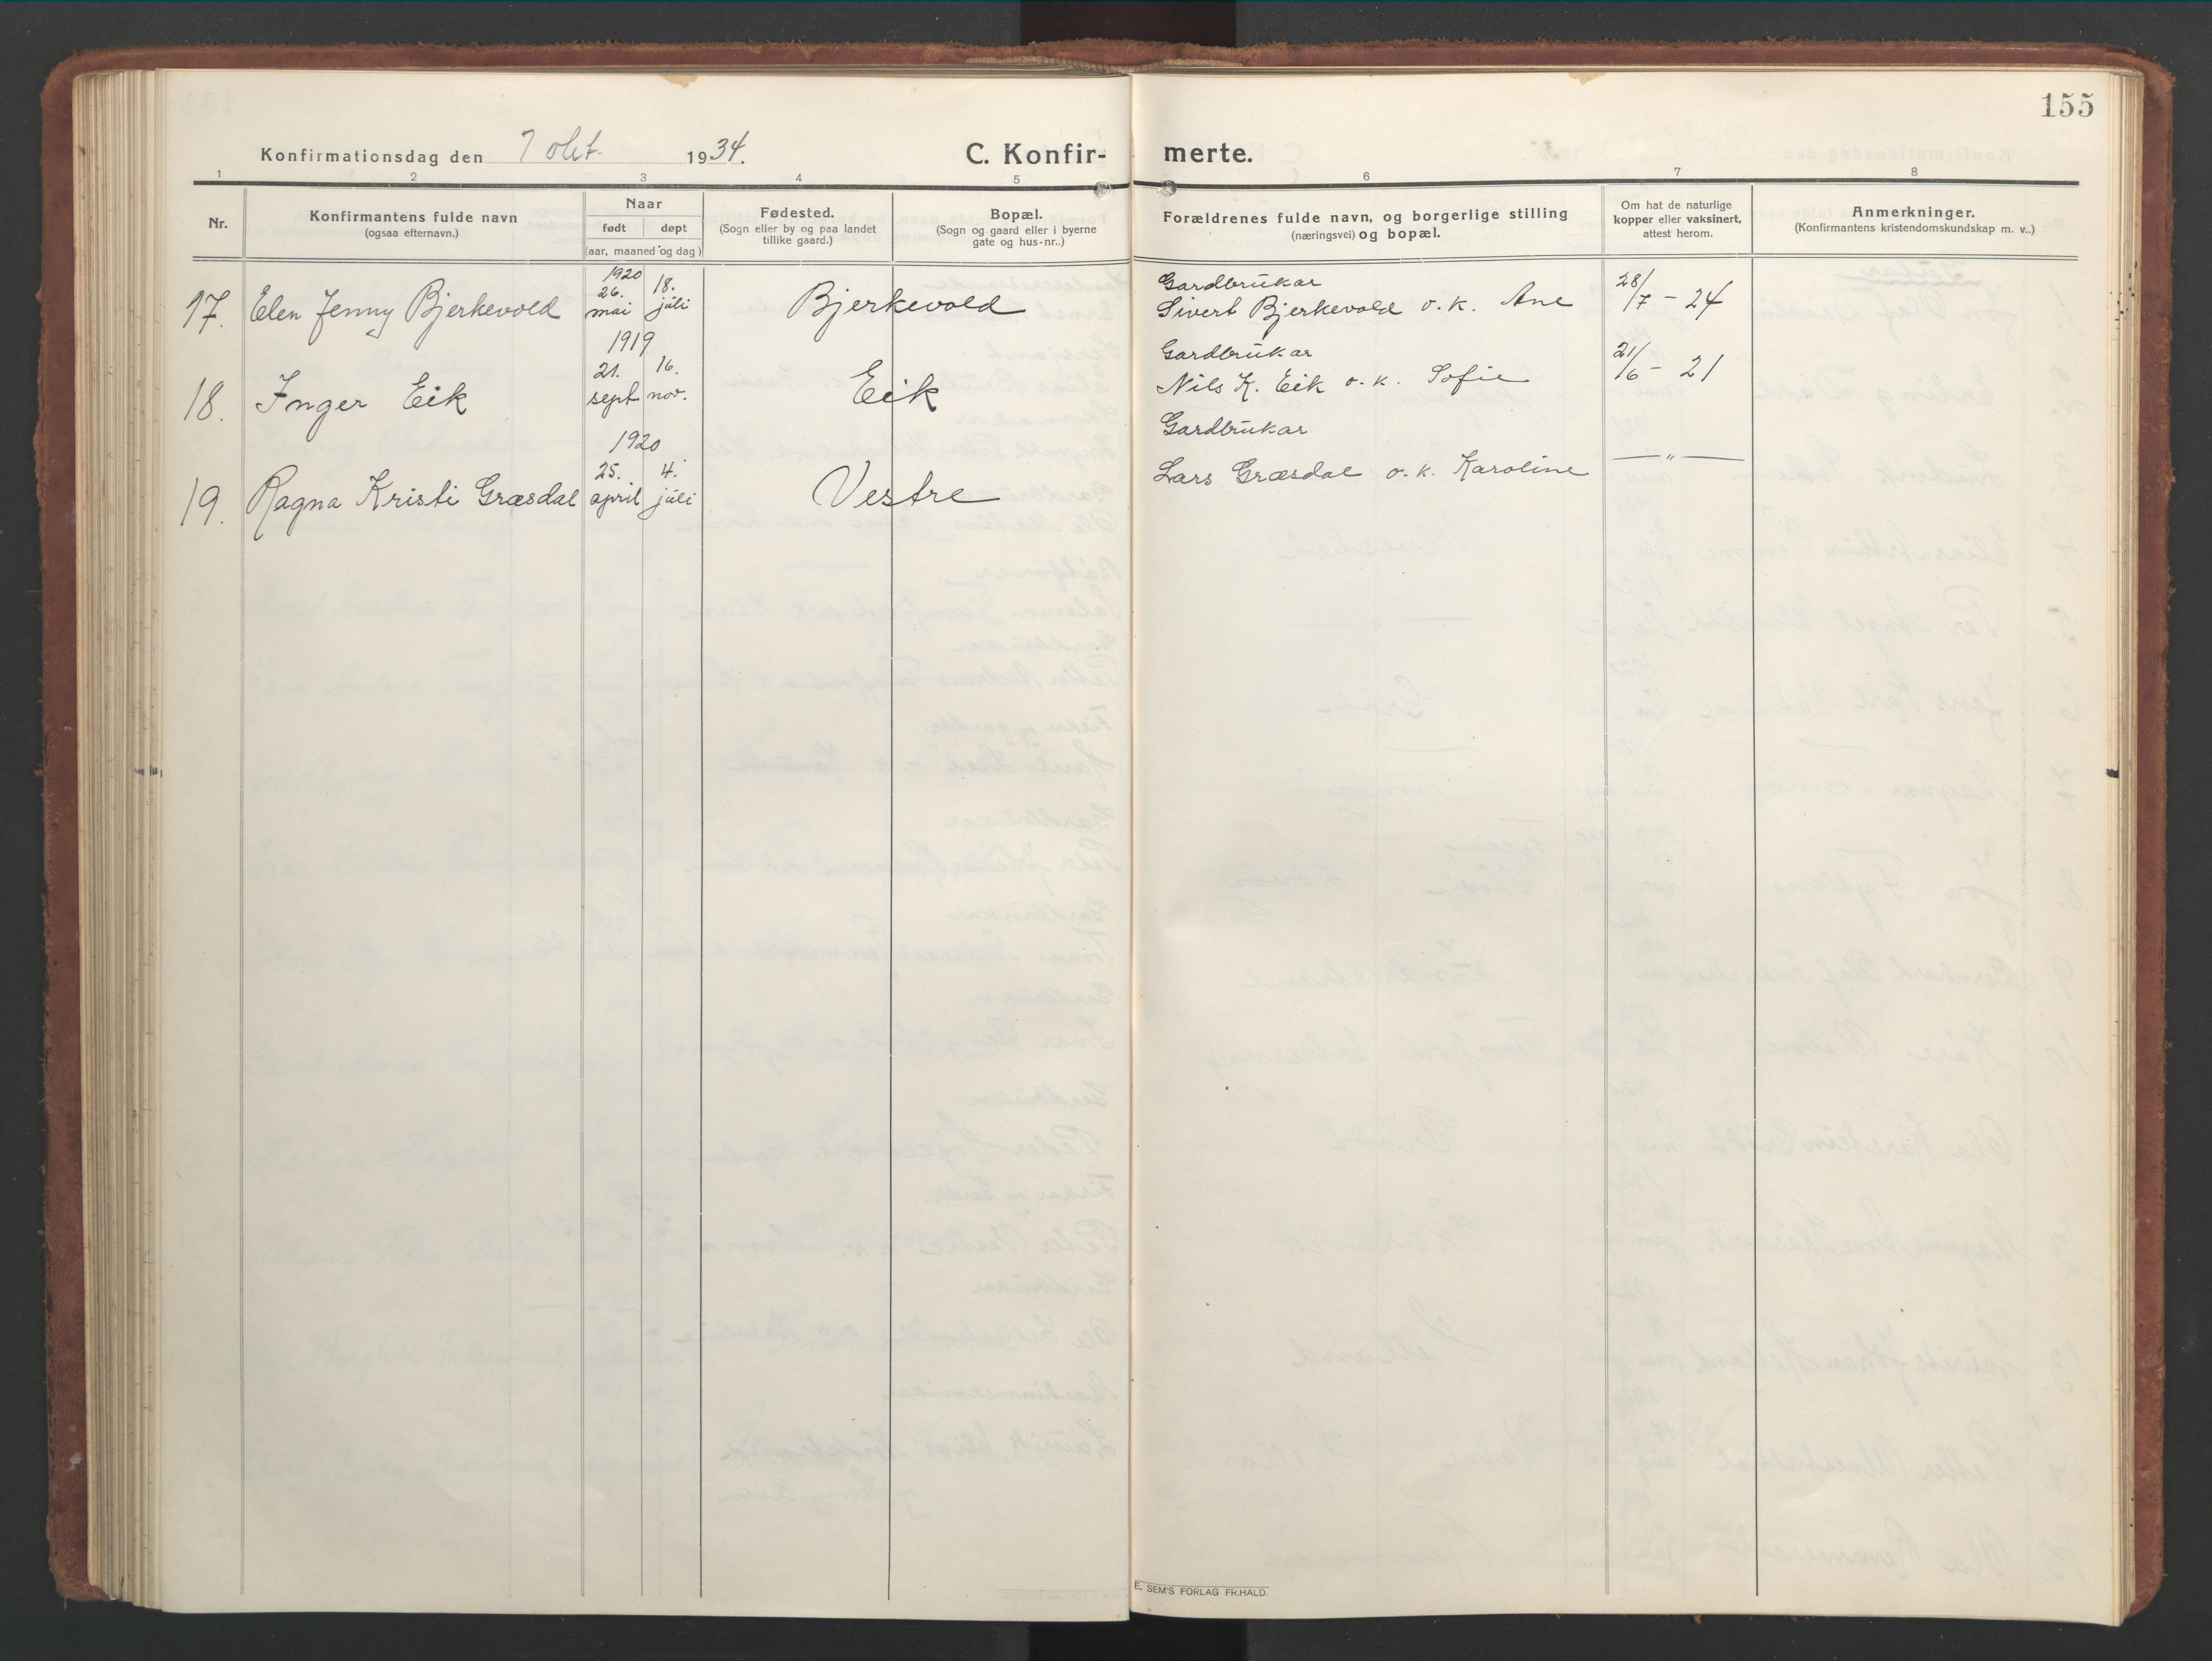 155
Konfirmationsdag den 7 okt. 1934.
C. Konfir- merte.
1 2 3 4 5 6 7 8
Nr.
Konfirmantens fulde navn
(ogsaa efternavn.)
Naar
født døpt
(aar, maaned og dag)
Fødested.
(Sogn eller by og paa landet
tillike gaard.)
Bopæl.
(Sogn og gaard eller i byerne
gate og hus-nr..)
Forældrenes fulde navn, og borgerlige stilling
(næringsvei) og bopæl.
Om hat de naturlige
kopper eller vaksinert,
attest herom.
Anmerkninger.
(Konfirmantens kristendomskundskap m. v..)
1920
26. 18.
17. Elen Jenny Bjerkevold mai juli Bjerkevold
Gardbrukar
Sivert Bjerkevold o.k. Ane 28/7 - 24
1919
21. 16.
18. Inger Eik sept nov. Eik
Gardbrukar
Nils K. Eik o.k. Sofie 21/6 - 21
1920
25. 4.
19. Ragna Kristi Græsdal april juli Vestre
Gardbrukar
Lars Græsdal o.k. Karoline — " —
E. SEM'S FORLAG FR.HALD.